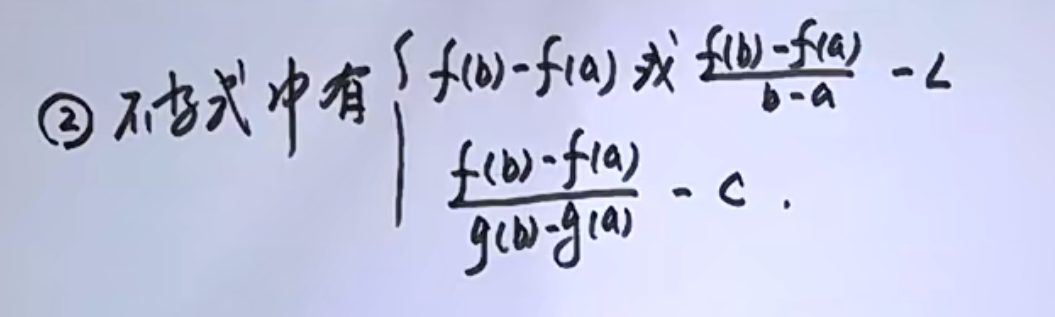 ② 不等式中有 { f(b)-f(a) 或 \frac{f(b)-f(a)}{b-a} - L
\frac{f(b)-f(a)}{g(b)-g(a)} - C.